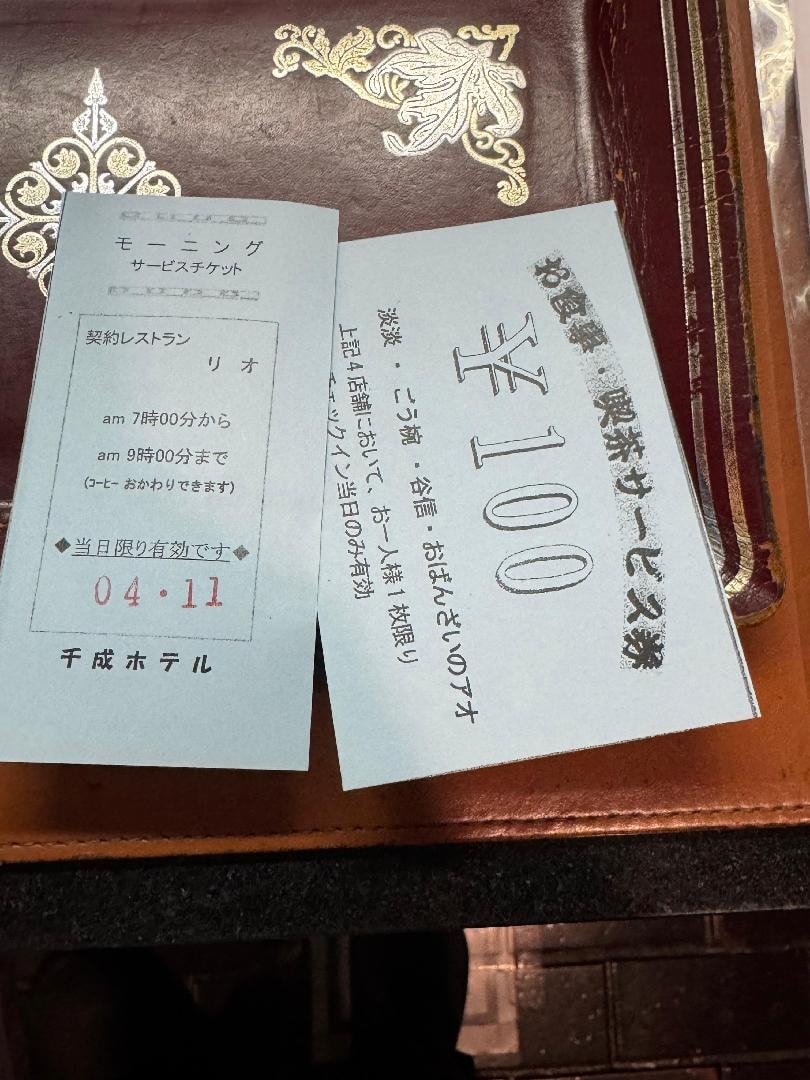 モーニング
サービスチケット
契約レストラン
リオ
am 7時00分から
am 9時00分まで
(コーヒー おかわりできます)
◆当日限り有効です◆
04・11
千成ホテル
お食事・喫茶サービス券
￥100
淡淡・ごう椀・谷信・おばんざいのアオ
上記4店舗において、お一人様1枚限り
チェックイン当日のみ有効